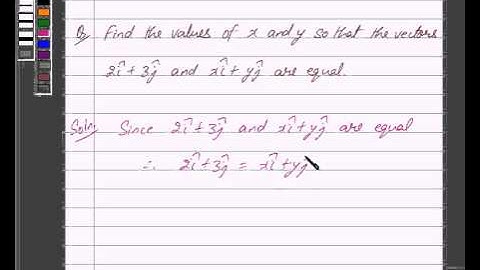 Q. Find the values of x and y so that the vectors
2î + 3ĵ and xî + yĵ are equal.
Soln: Since 2î + 3ĵ and xî + yĵ are equal
∴ 2î + 3ĵ = xî + yĵ